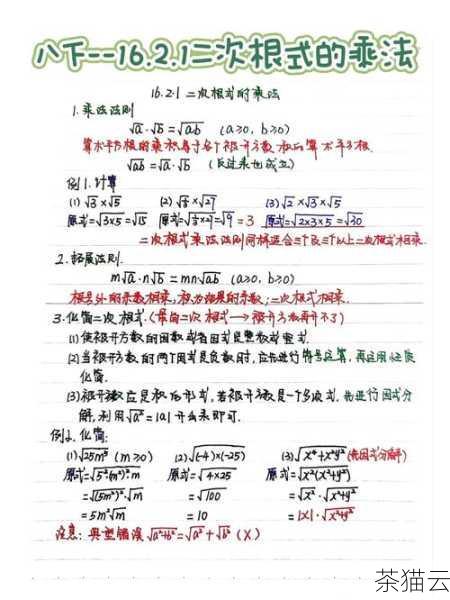 八下--16.2.1二次根式的乘法
16.2.1 二次根式的乘法
1. 乘法法则
√a·√b=√ab (a≥0, b≥0)
算术平方根的乘积等于各个被开方数积的算术平方根.
√ab=√a·√b (反过来也成立)
例1.计算
(1) √3×√5 (2) √⅓×√27 (3) √2×√3×√5
原式=√3×5=√15 原式=√⅓×27=√9=3 原式=√2×3×5=√30
二次根式乘法法则同样适合三个及三个以上二次根式相乘.
2. 拓展法则.
m√a·n√b=mn√ab (a≥0, b≥0)
根号外的系数相乘,积为结果的系数;二次根式相乘.
3.化简二次根式.(最简二次根式→被开方数再开不了)
(1)使被开方数的因数或者因式是整数或整式.
(2)当被开方数的两个因式是负数时,应先进行符号运算,再运用性质
化简.
(3)被开方数应是积的形式,若被开方数是一个多项式,先进行因式分
解,利用√a²=|a|开出来即可.
例2.化简:
(1)√25m⁵ (m≥0) (2)√(-4)×(-25) (3)√x⁴+x²y² (先因式分解)
原式=√5²(m²)²·m 原式=√4×25 原式=√x²(x²+y²)
=√(5m²)²·√m =√100 =√x²·√x²+y²
=5m²√m =10 =|x|·√x²+y²
注意:典型错误√a²+b²=√a²+√b² (×)
茶猫云